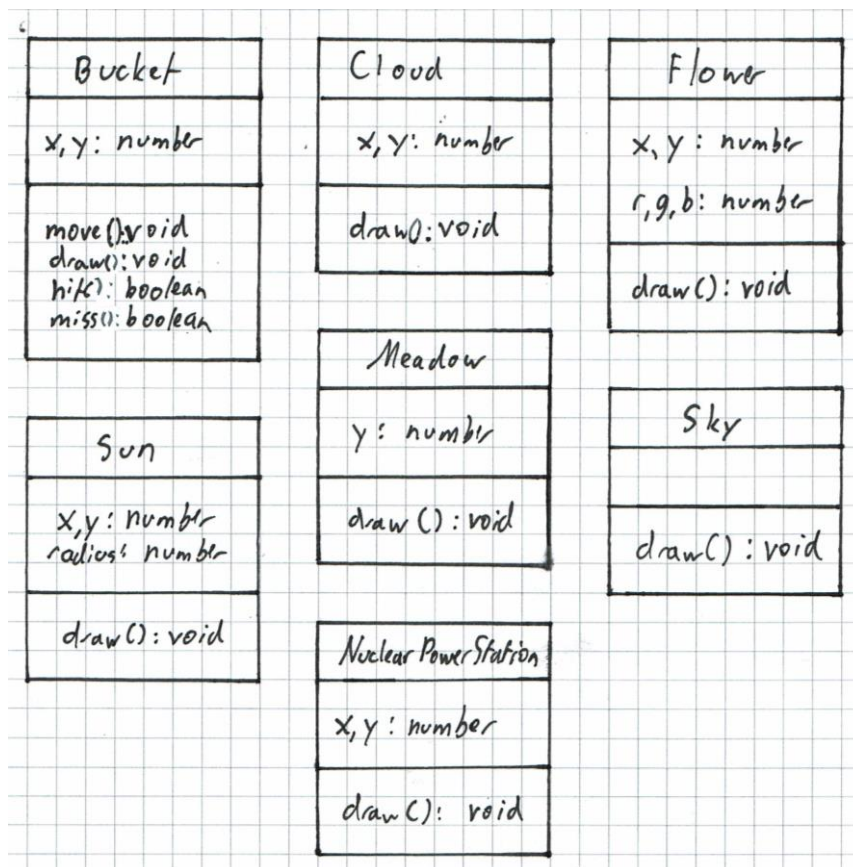 Bucket
x, y: number
move():void
draw(): void
hit(): boolean
miss(): boolean
Cloud
x, y: number
draw(): void
Flower
x, y: number
r, g, b: number
draw(): void
Meadow
y: number
draw(): void
Sky
draw(): void
Sun
x, y: number
radius: number
draw(): void
NuclearPowerStation
x, y: number
draw(): void